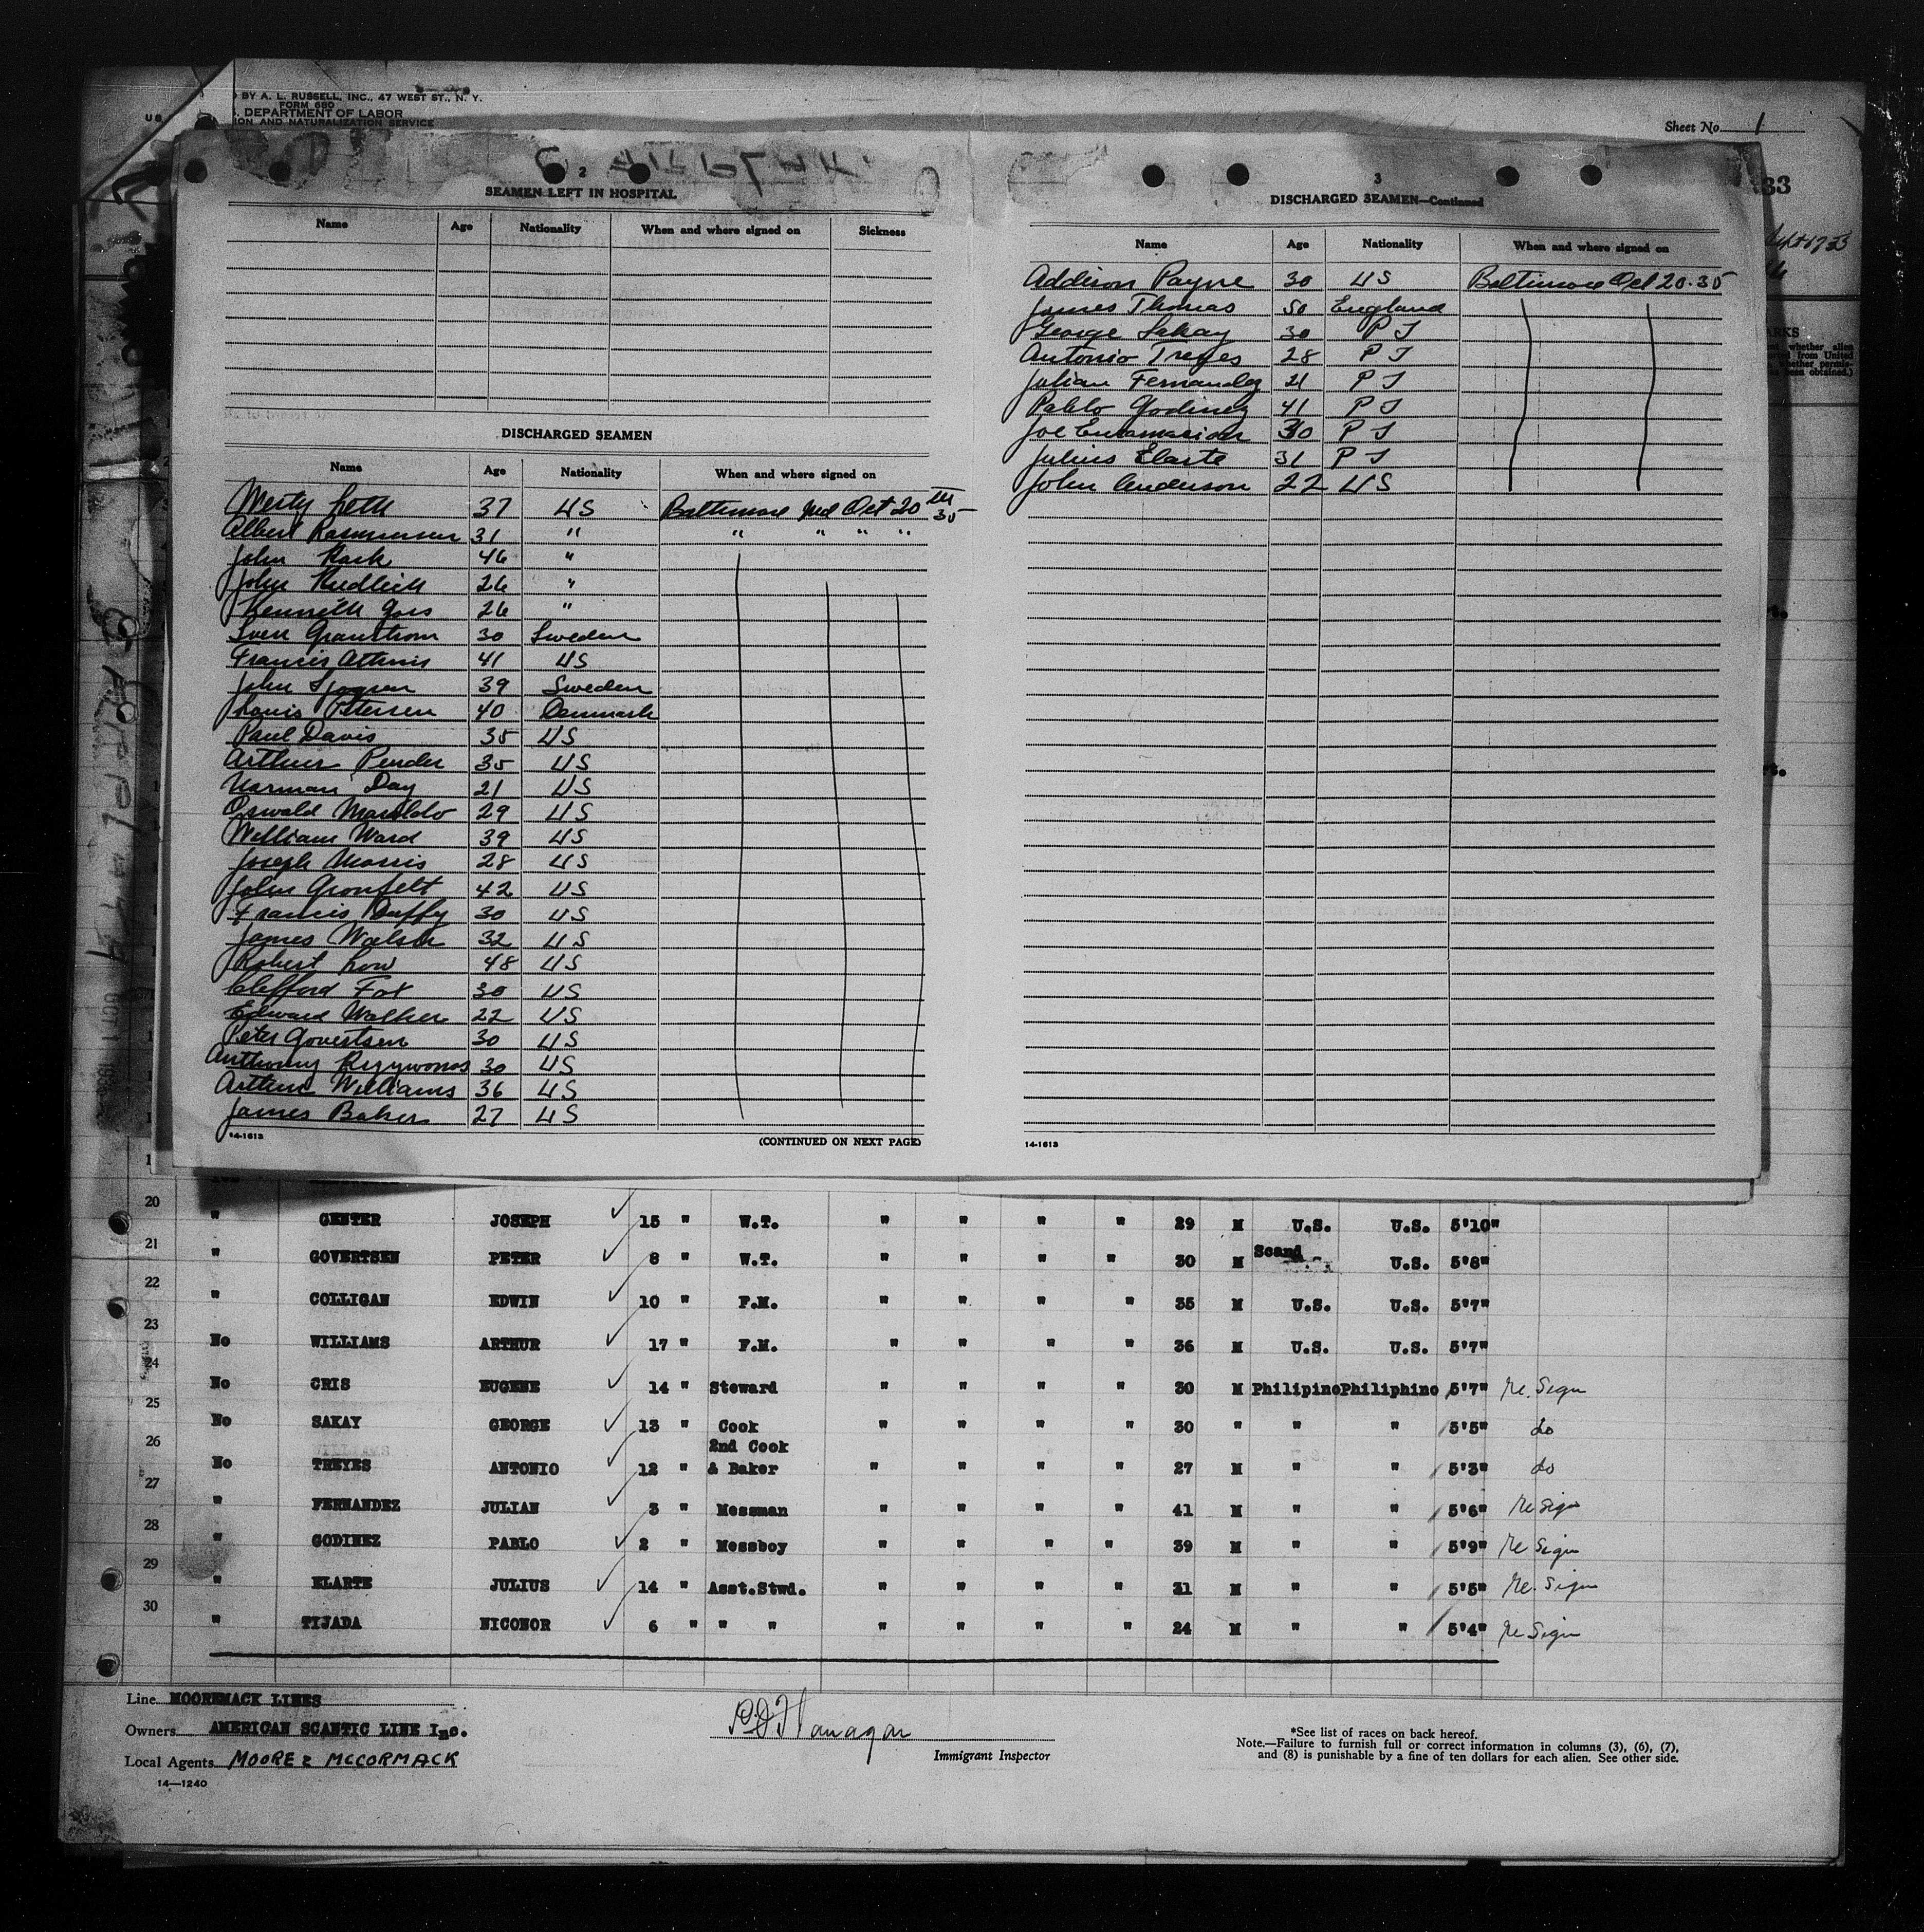 BY A. L. RUSSELL, INC., 47 WEST ST., N. Y.
FORM 680
DEPARTMENT OF LABOR
ION AND NATURALIZATION SERVICE
Sheet No. 1
33
2
SEAMEN LEFT IN HOSPITAL
Name Age Nationality When and where signed on Sickness
DISCHARGED SEAMEN
Name Age Nationality When and where signed on
37 US Baltimore Md Oct 20th 35
Albert Rasmussen 31 " " " " "
John 46 "
John 26 "
Kenneth 26 "
Sven Granstrom 30 Sweden
Francis 41 US
John Sjogren 39 Sweden
Louis Petersen 40 Denmark
Paul Davis 35 US
Arthur Pender 35 US
Norman Day 21 US
Oswald 29 US
William Ward 39 US
Joseph Morris 28 US
John Gronfelt 42 US
Francis Duffy 30 US
James Walsh 32 US
Robert Low 48 US
Clifford Fox 30 US
Edward Walker 22 US
Peter Govertsen 30 US
Anthony 30 US
Arthur Williams 36 US
James Baker 27 US
14-1613
(CONTINUED ON NEXT PAGE)
3
DISCHARGED SEAMEN—Continued
Name Age Nationality When and where signed on
Addison Payne 30 US Baltimore Oct 20-35
James Thomas 50 England
George Sakay 30 P I
Antonio Treyes 28 P I
Julian Fernandez 21 P I
Pablo Godinez 41 P I
Joe 30 P I
Julius Elarte 31 P I
John Anderson 22 US
14-1613
20 " GENTER JOSEPH 15 " W.T. " " " " 29 M U.S. U.S. 5'10"
21 " GOVERTSEN PETER 8 " W.T. " " " " 30 M Scand U.S. 5'8"
22 " COLLIGAN EDWIN 10 " F.M. " " " " 35 M U.S. U.S. 5'7"
23 No WILLIAMS ARTHUR 17 " F.M. " " " " 36 M U.S. U.S. 5'7"
24 No CRIS EUGENE 14 " Steward " " " " 30 M Philipino Philiphino 5'7" Re. Sign
25 No SAKAY GEORGE 13 " Cook " " " " 30 " " " 5'5" do
26 No TREYES ANTONIO 12 " 2nd Cook & Baker " " " " 27 M " " 5'3" do
27 " FERNANDEZ JULIAN 3 " Messman " " " " 41 M " " 5'6" Re Sign
28 " GODINEZ PABLO 2 " Messboy " " " " 39 M " " 5'9" Re Sign
29 " ELARTE JULIUS 14 " Asst.Stwd. " " " " 31 M " " 5'5" Re. Sign
30 " TIJADA NICONOR 6 " " " " " " " 24 M " " 5'4" Re Sign
Line MOOREMACK LINES
Owners AMERICAN SCANTIC LINE Inc.
Local Agents MOORE & MCCORMACK
14—1240
Flanagan
Immigrant Inspector
*See list of races on back hereof.
Note.—Failure to furnish full or correct information in columns (3), (6), (7),
and (8) is punishable by a fine of ten dollars for each alien. See other side.